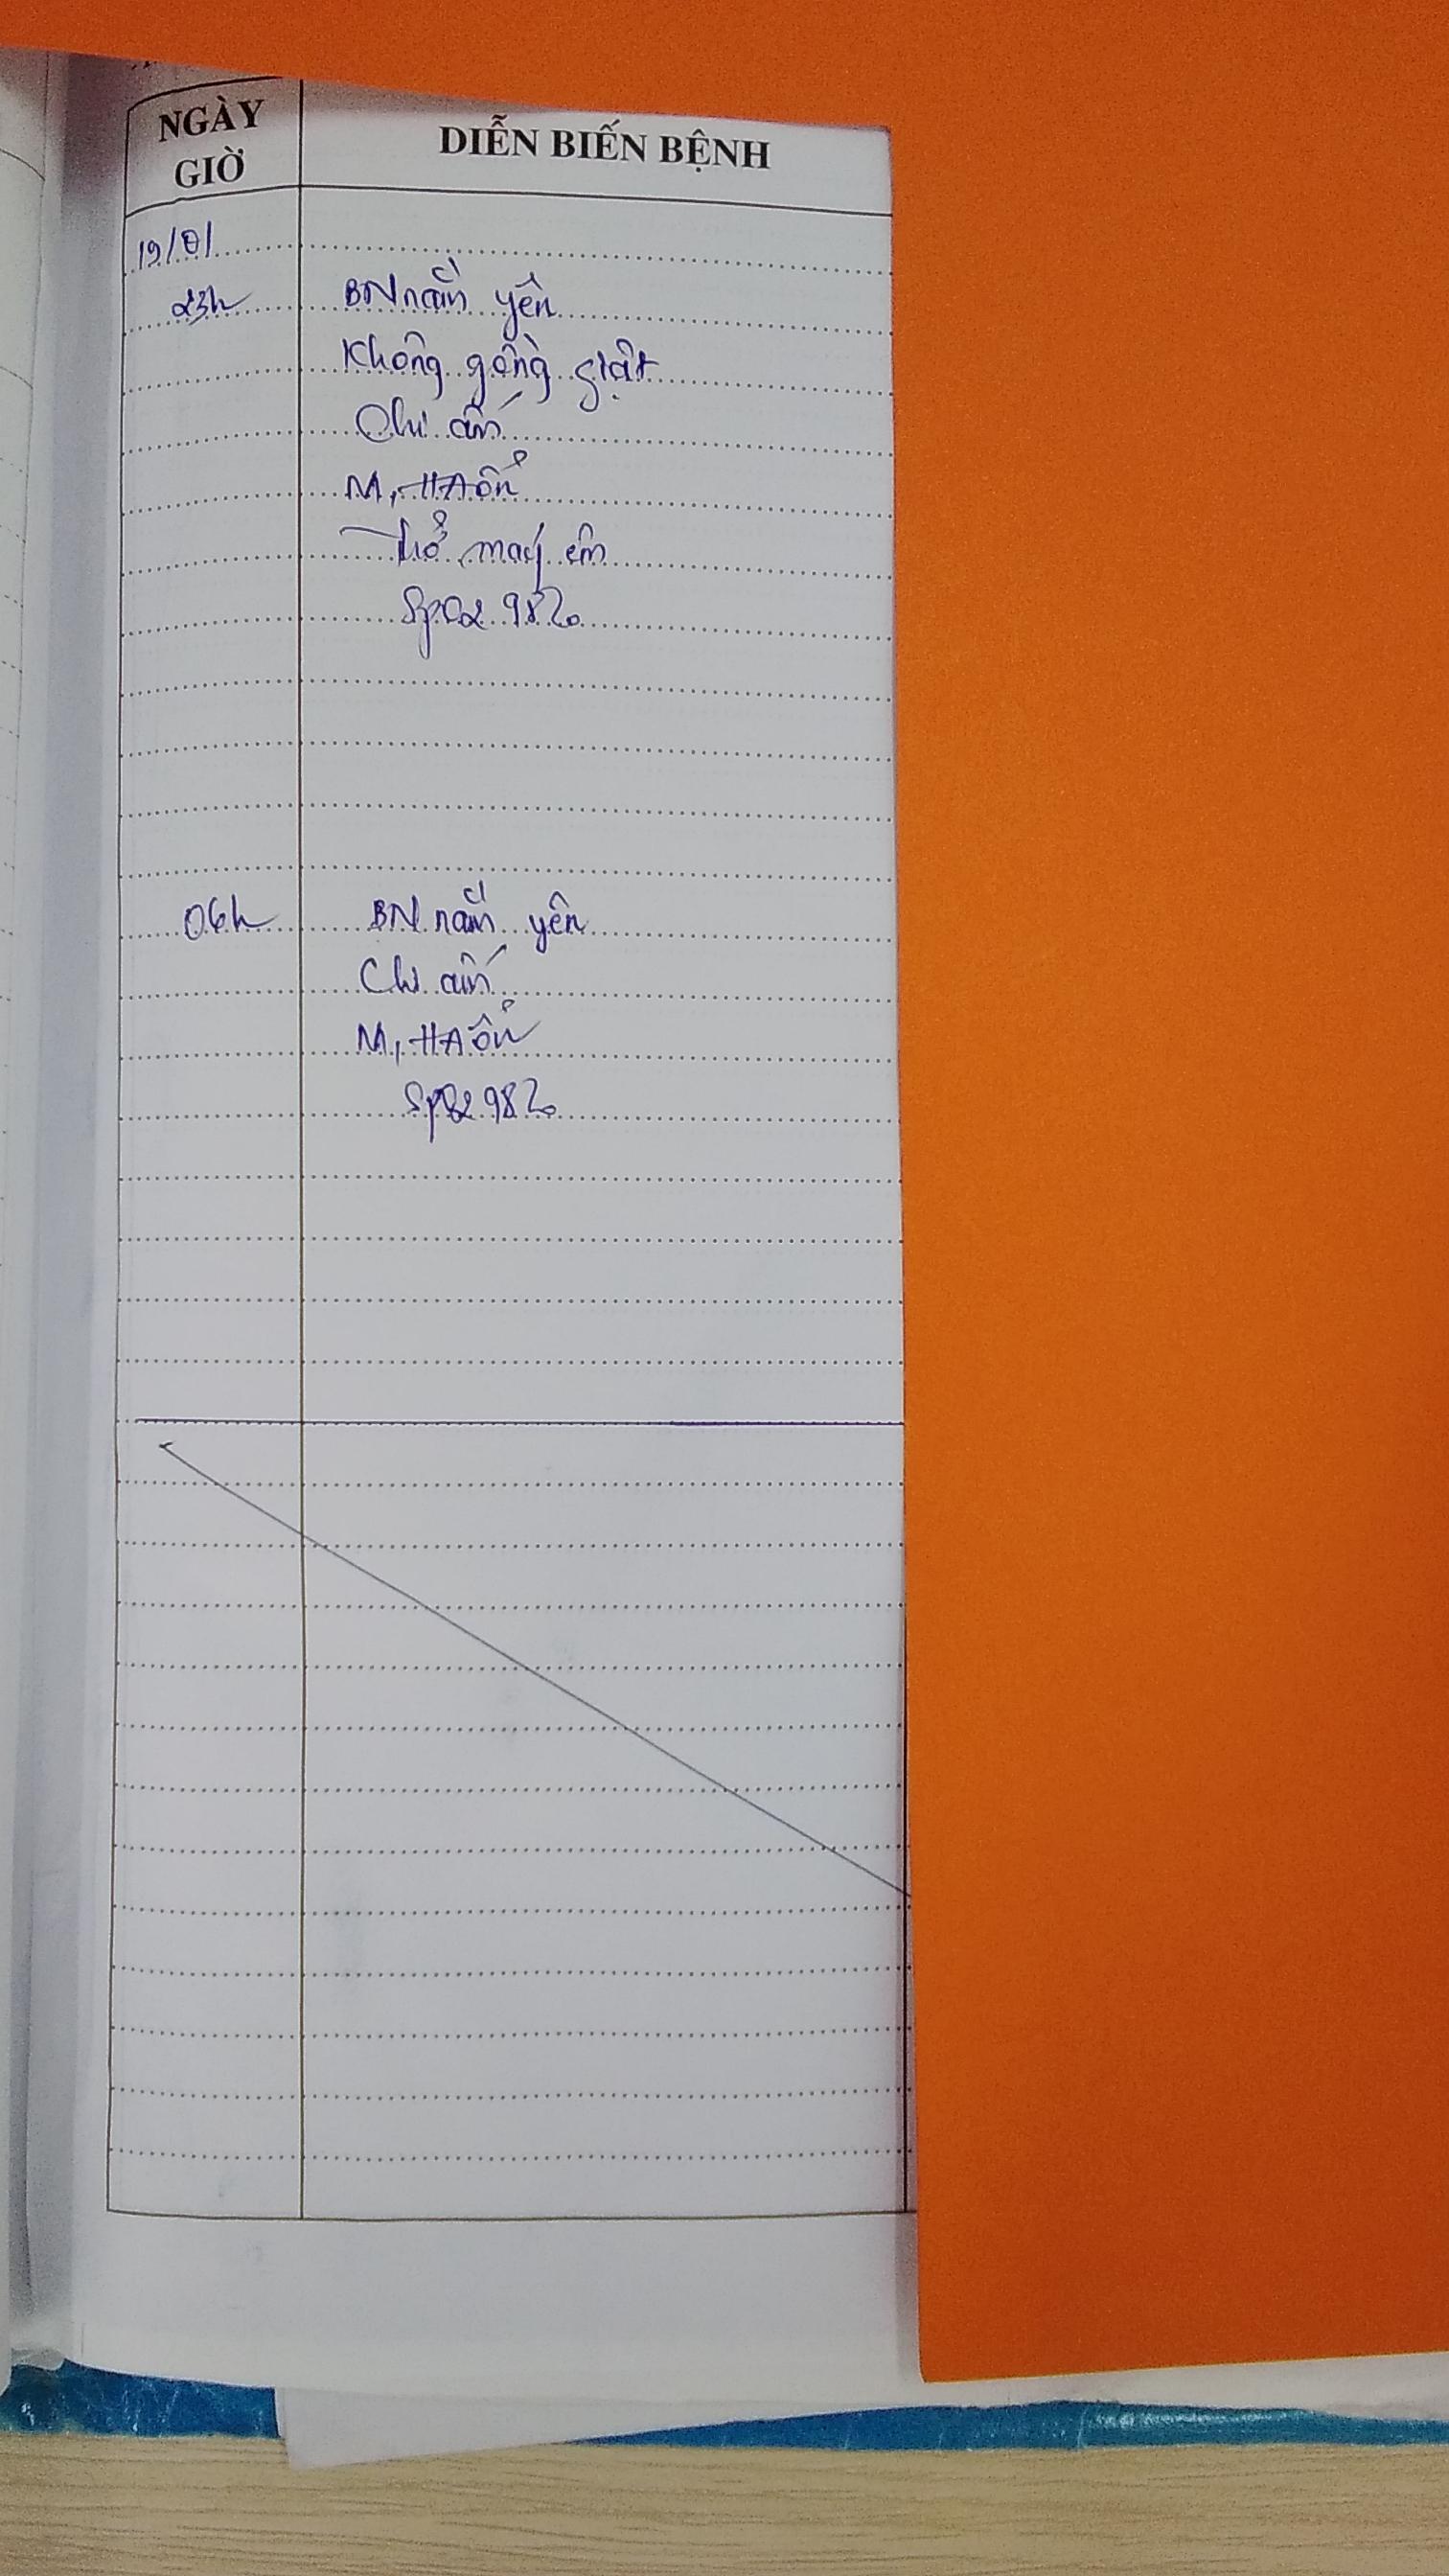 NGÀY
GIỜ
DIỄN BIẾN BỆNH
19/01
23h BN nằm yên
Không gồng giật
Chi ấm
M, HA ổn
Thở máy êm
SpO2 98%
06h BN nằm yên
Chi ấm
M, HA ổn
SpO2 98%